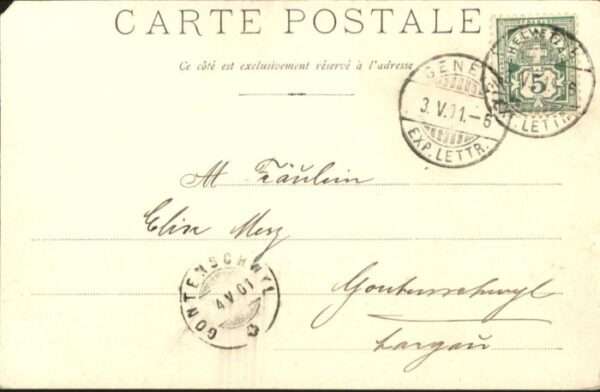 CARTE POSTALE
Ce côté est exclusivement réservé à l'adresse.
HELVETIA
5
EXP. LETTR.
GENÈ
3.V.01.–6
EXP. LETTR.
Fräulein
Elise Merz
GONTENSCHWYL
4 V 01
Gontenschwyl
Aargau